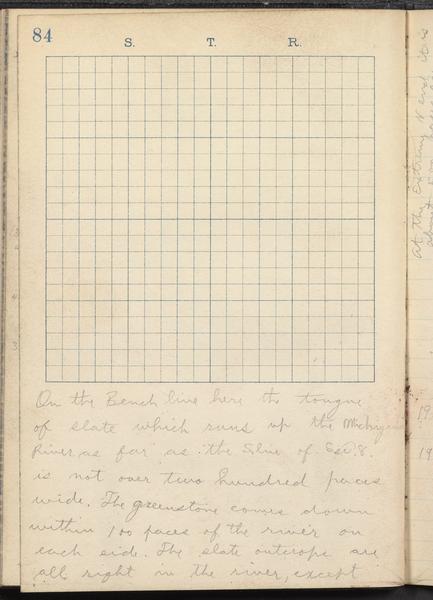 84
S. T. R.
On the Bench line here the tongue
of slate which runs up the Michigan
River as far as the S. line of Sec. 8.
is not over two hundred paces
wide. The greenstone comes down
within 100 paces of the river on
each side. The slate outcrops are
all right in the river, except
at the extreme N end it is
about
19
19